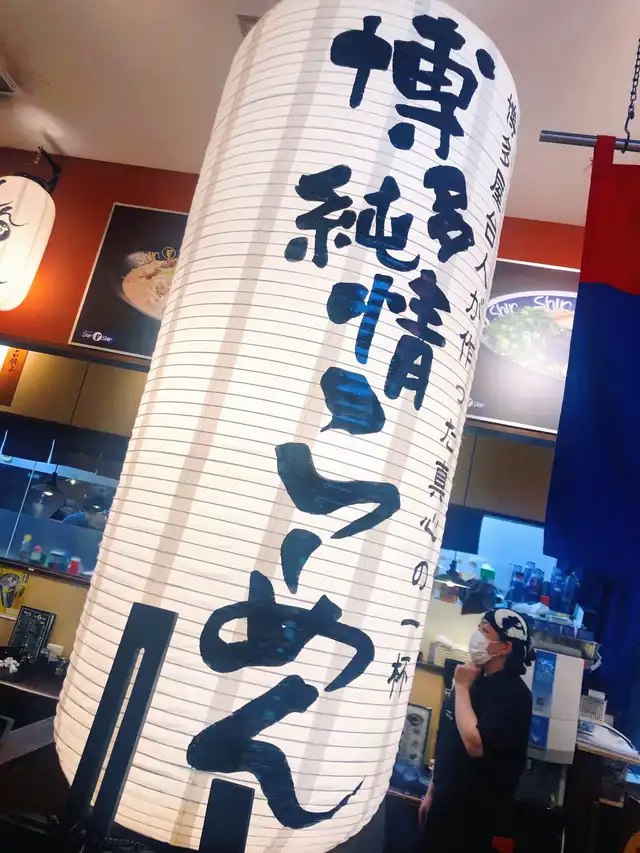 博多屋台人が作った真心の一杯
博多
純情らーめん
Shin
Shin Shin
Shin Shin